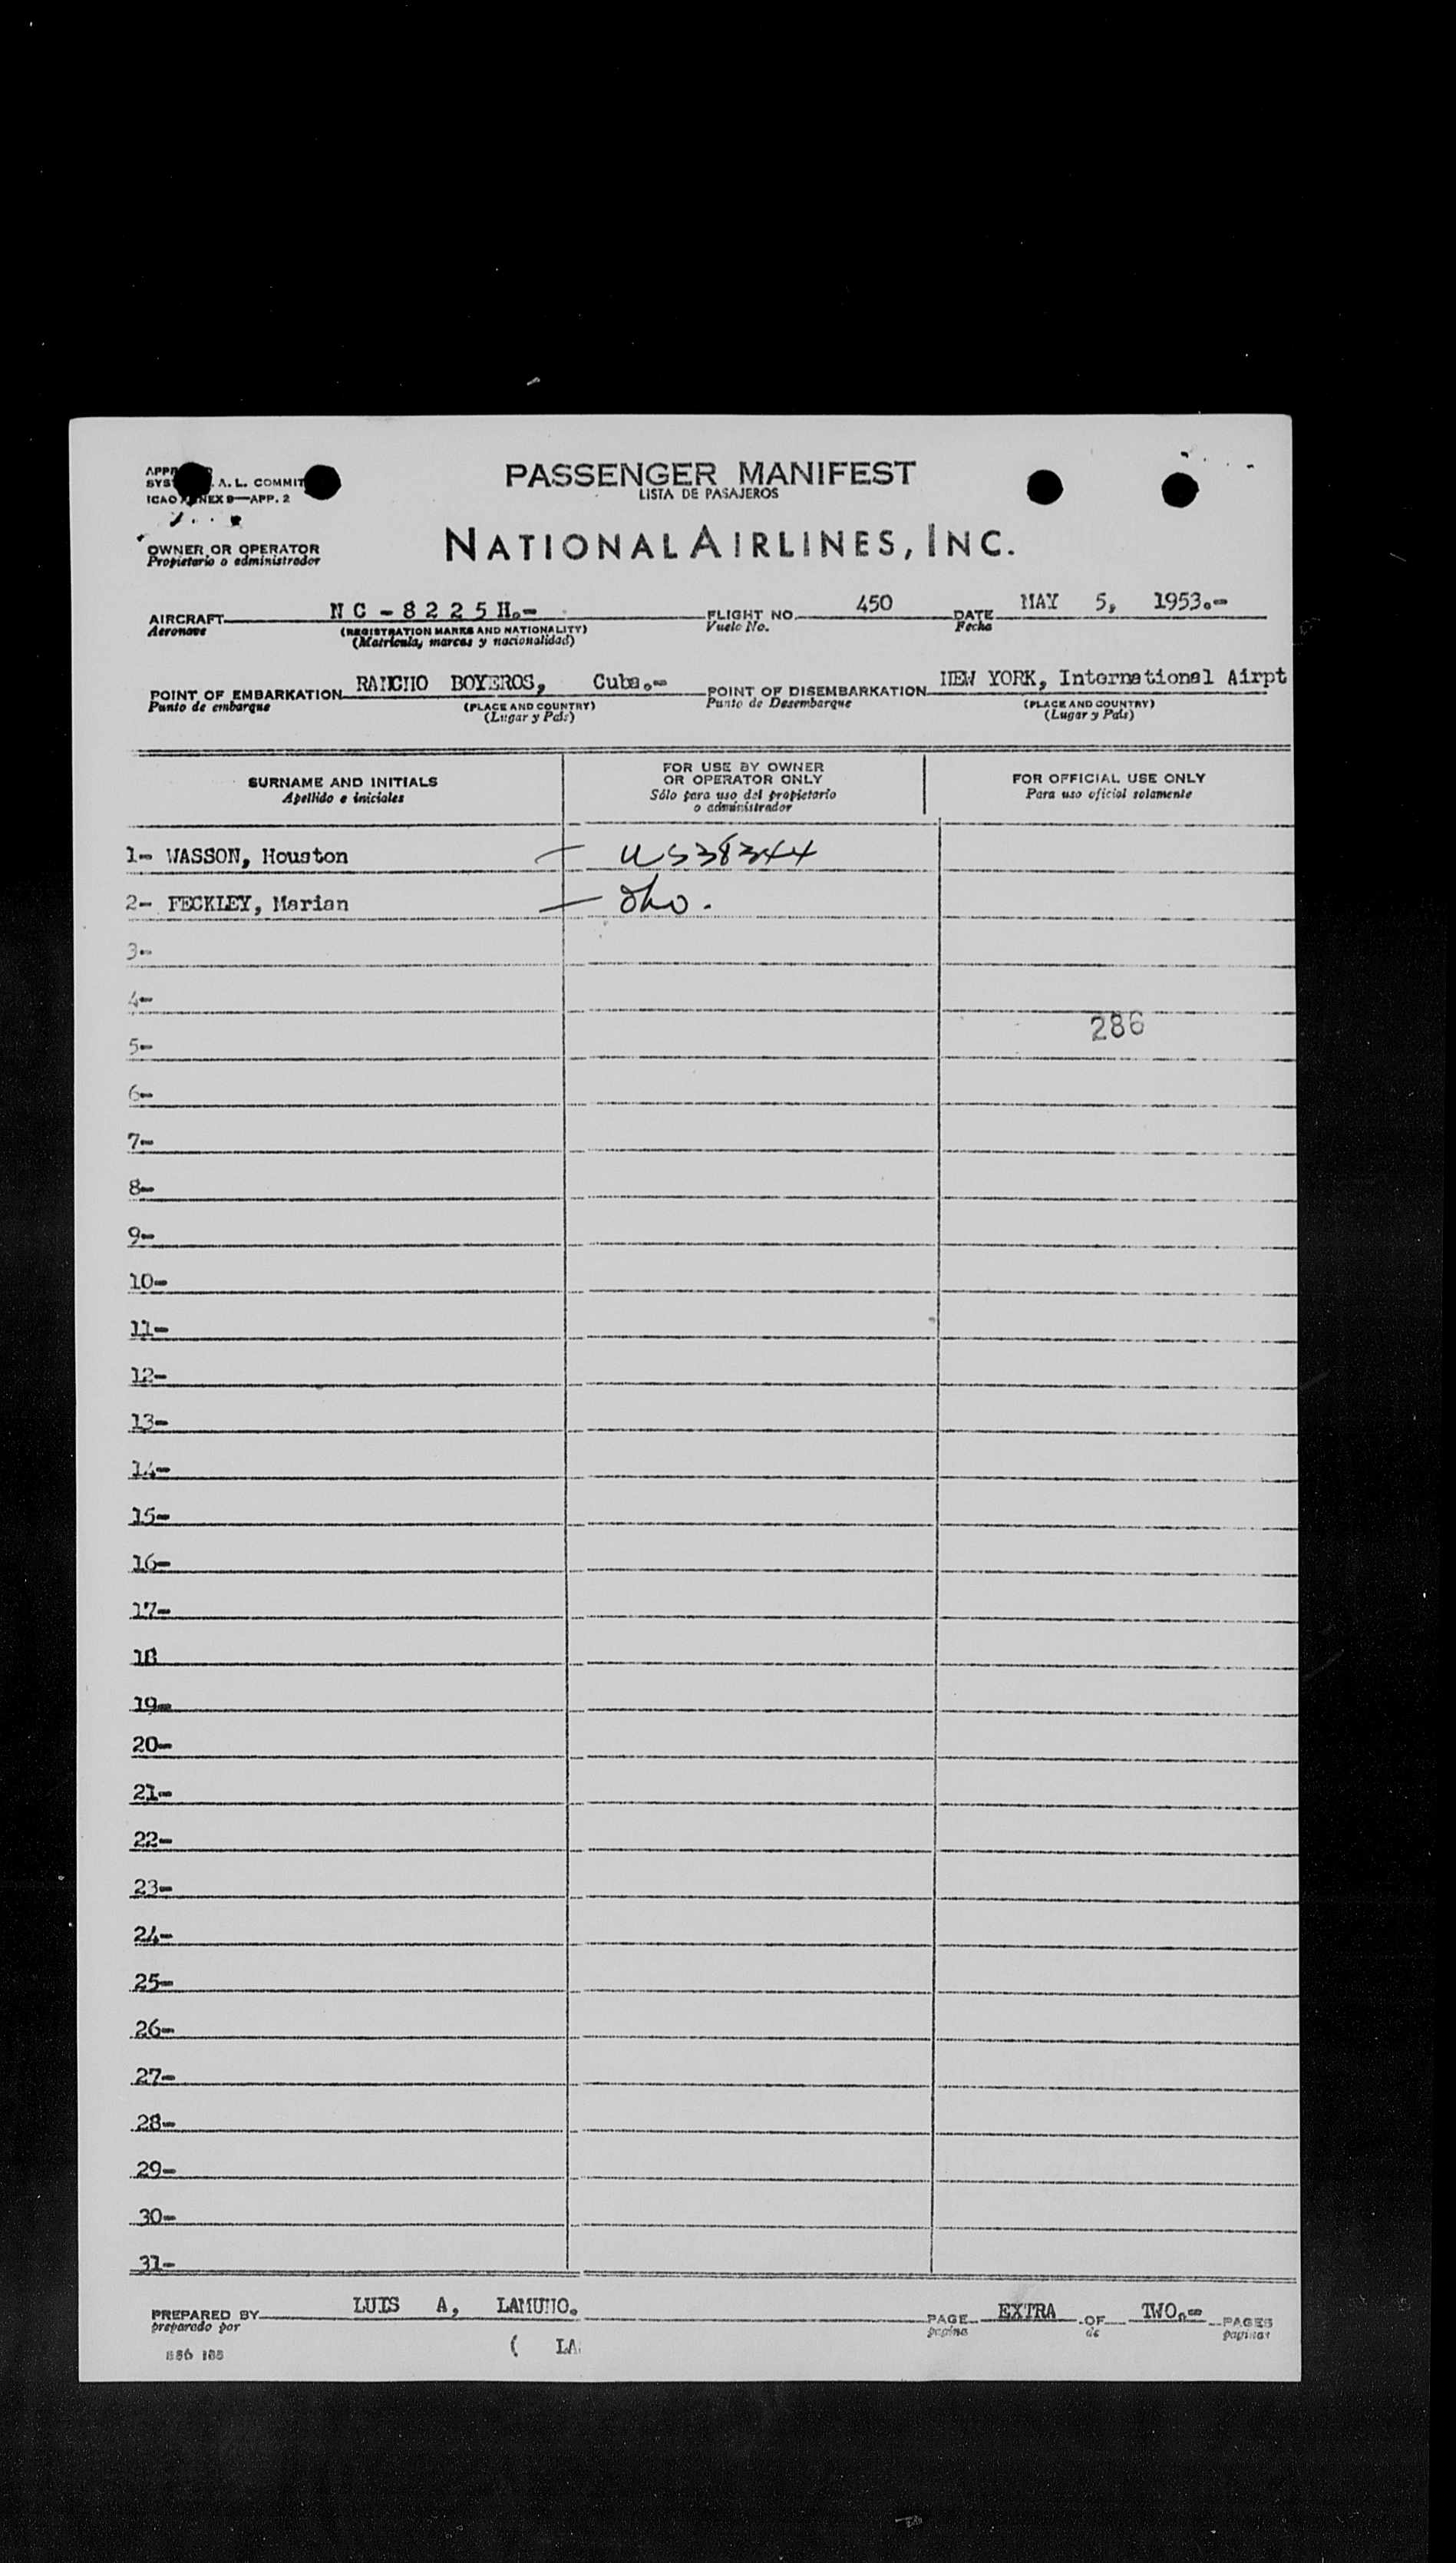 PASSENGER MANIFEST
LISTA DE PASAJEROS
A. L. COMMIT
ICAO ANNEX 9—APP. 2
NATIONAL AIRLINES, INC.
OWNER OR OPERATOR
Propietario o administrador
AIRCRAFT NC-8225H.- FLIGHT NO. 450 DATE MAY 5, 1953.-
Aeronave (REGISTRATION MARKS AND NATIONALITY) Vuelo No. Fecha
(Matrícula, marcas y nacionalidad)
POINT OF EMBARKATION RANCHO BOYEROS, Cuba.- POINT OF DISEMBARKATION NEW YORK, International Airpt
Punto de embarque (PLACE AND COUNTRY) Punto de Desembarque (PLACE AND COUNTRY)
(Lugar y País) (Lugar y País)
SURNAME AND INITIALS
Apellido e iniciales
FOR USE BY OWNER
OR OPERATOR ONLY
Sólo para uso del propietario
o administrador
FOR OFFICIAL USE ONLY
Para uso oficial solamente
1- WASSON, Houston — US38344
2- FECKLEY, Marian —
3-
4-
286
5-
6-
7-
8-
9-
10-
11-
12-
13-
14-
15-
16-
17-
18
19-
20-
21-
22-
23-
24-
25-
26-
27-
28-
29-
30-
31-
PREPARED BY LUIS A, LAMUNO. PAGE EXTRA OF TWO.- PAGES
preparado por pagina de paginas
( LA